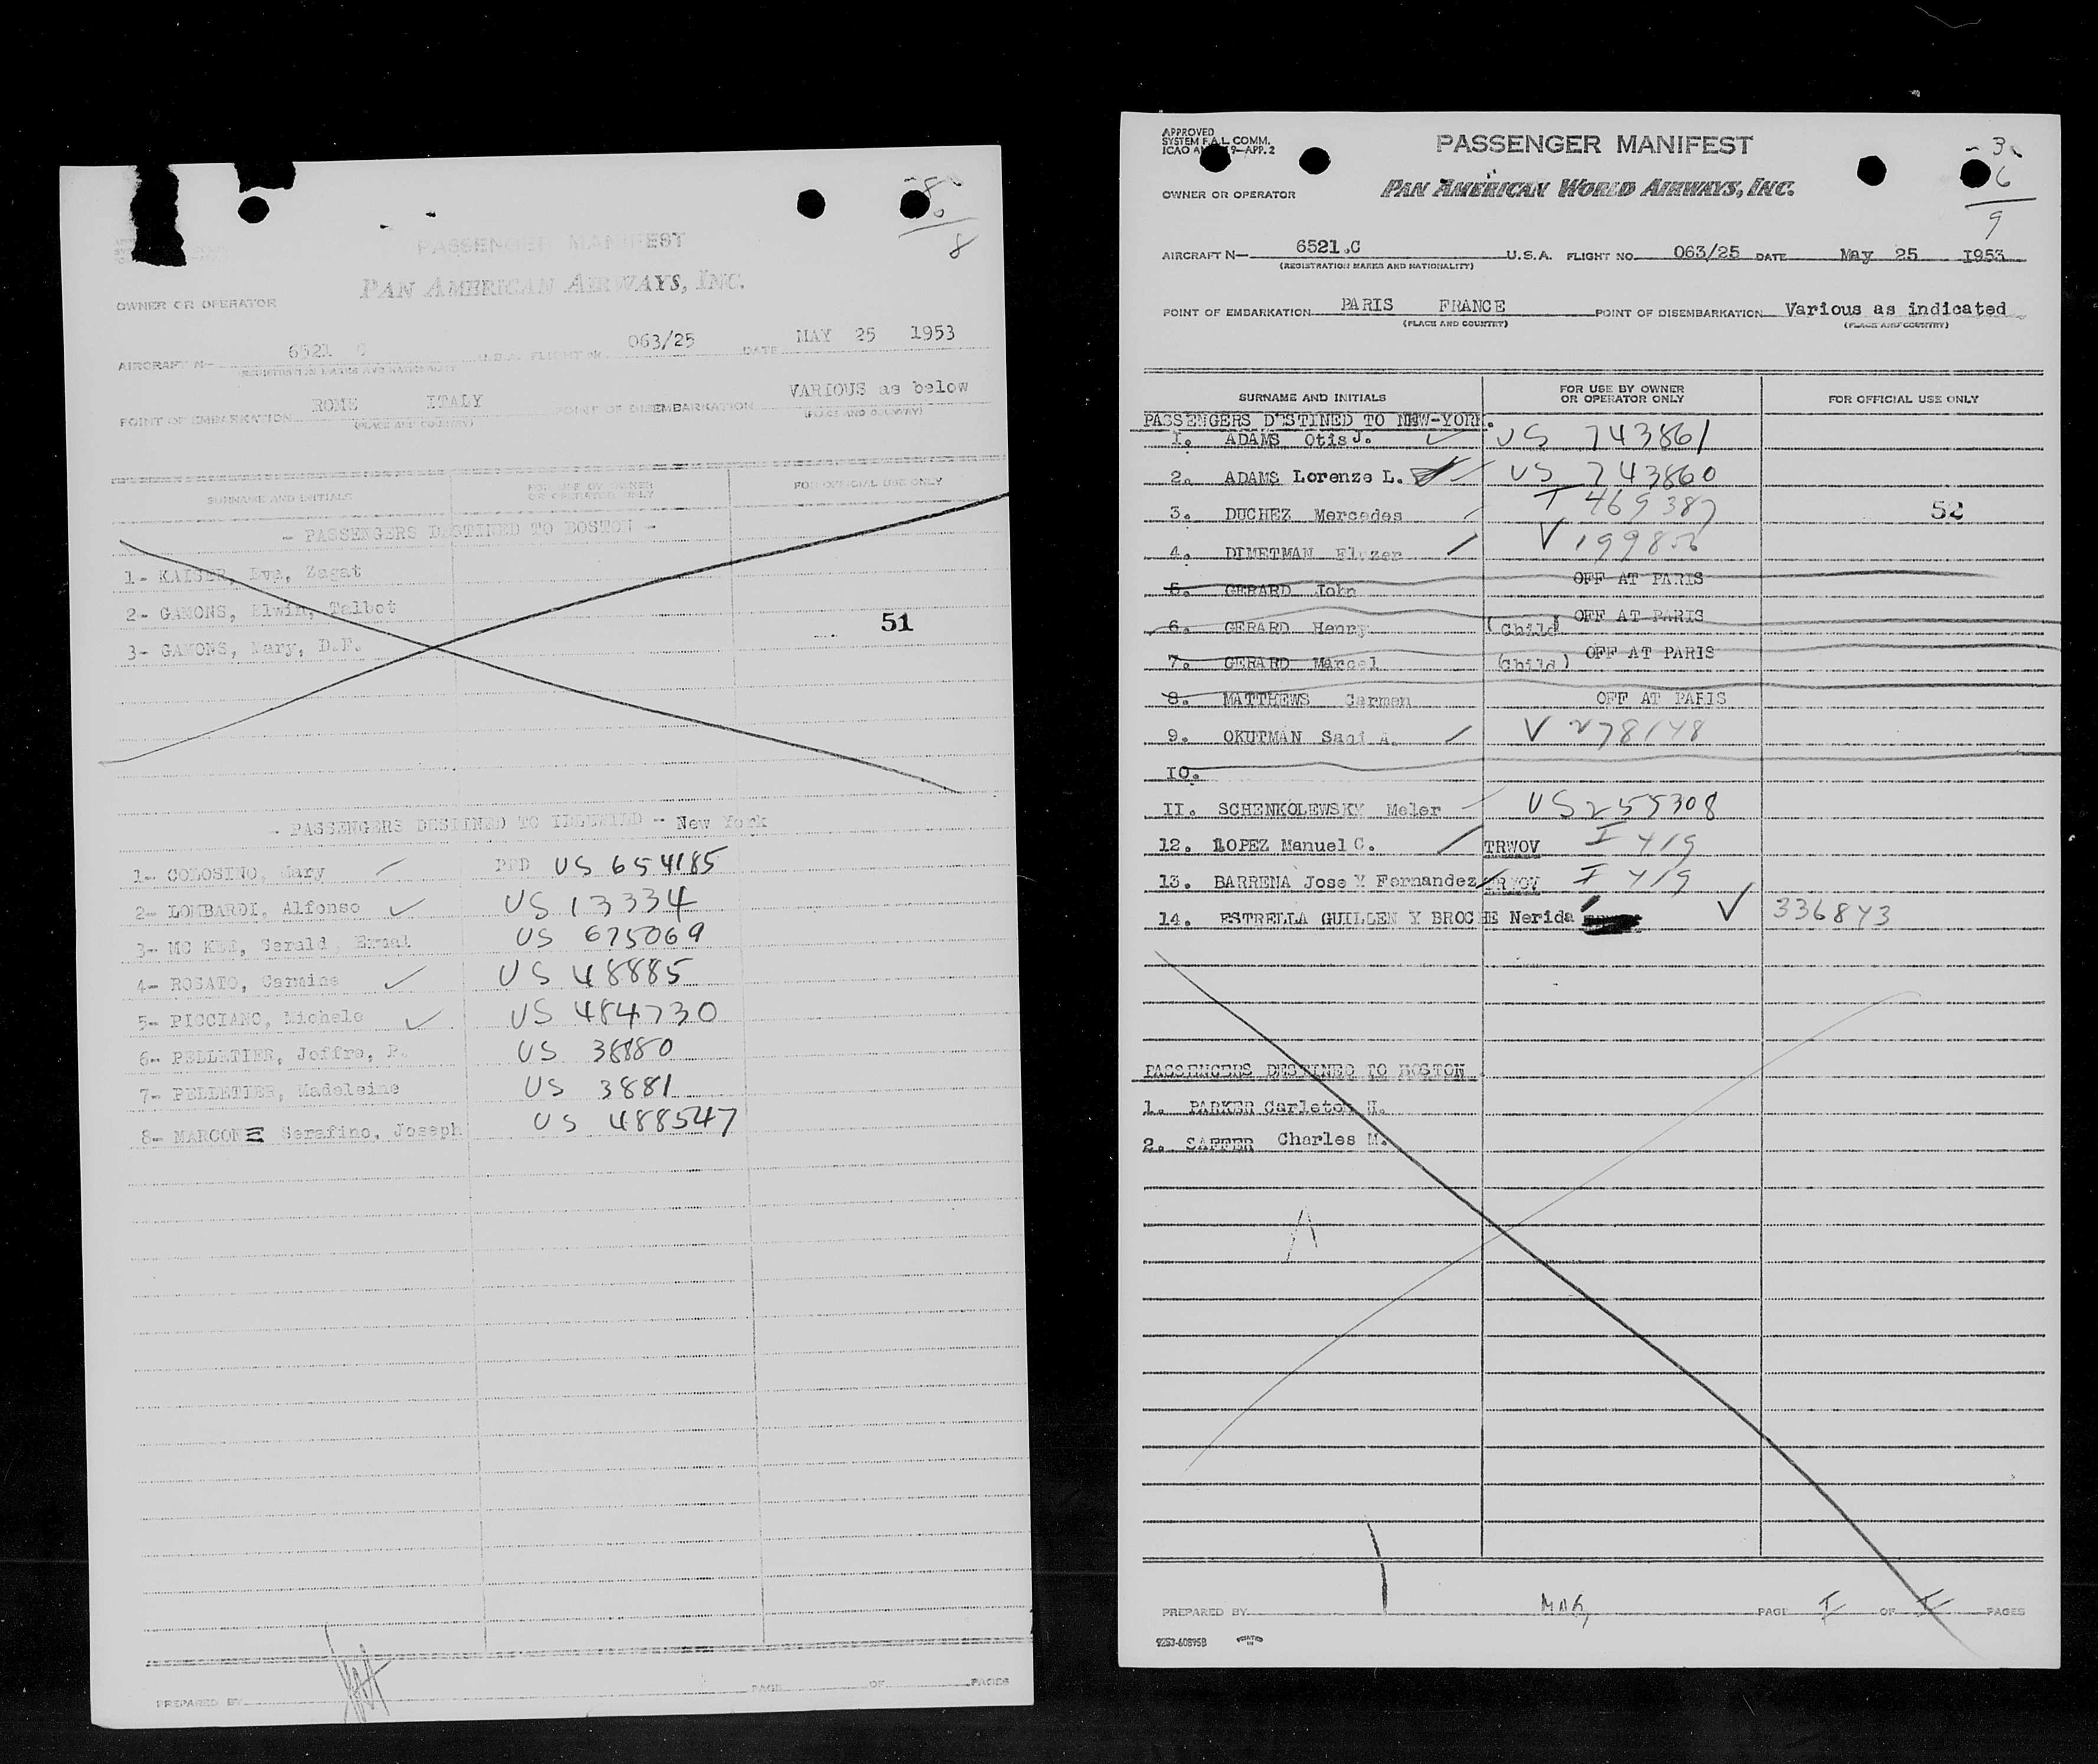 -8-
0
8
PASSENGER MANIFEST
PAN AMERICAN AIRWAYS, INC.
OWNER OR OPERATOR
AIRCRAFT N— 6521 C U.S.A. FLIGHT NO. 063/25 DATE MAY 25 1953
(REGISTRATION MARKS AND NATIONALITY)
POINT OF EMBARKATION ROME ITALY POINT OF DISEMBARKATION VARIOUS as below
(PLACE AND COUNTRY) (PLACE AND COUNTRY)
SURNAME AND INITIALS FOR USE BY OWNER OR OPERATOR ONLY FOR OFFICIAL USE ONLY
- PASSENGERS DESTINED TO BOSTON -
1- KAISER, Eva, Zagat
2- GAMONS, Elwin, Talbot
51
3- GAMONS, Mary, D.F.
- PASSENGERS DESTINED TO IDLEWILD - New York
1- COLOSINO, Mary PPD US 654185
2- LOMBARDI, Alfonso US 13334
3- MC KEE, Gerald, US 675069
4- ROSATO, Carmine US 48885
5- PICCIANO, Michele US 484730
6- PELLETIER, Joffre, P. US 38880
7- PELLETIER, Madeleine US 3881
8- MARCONE Serafino, Joseph US 488547
PREPARED BY PAGE OF PAGES
APPROVED
SYSTEM F.A.L. COMM.
ICAO AN 9—APP. 2
PASSENGER MANIFEST
-3-
6
9
OWNER OR OPERATOR PAN AMERICAN WORLD AIRWAYS, INC.
AIRCRAFT N— 6521.C U.S.A. FLIGHT NO. 063/25 DATE May 25 1953
(REGISTRATION MARKS AND NATIONALITY)
POINT OF EMBARKATION PARIS FRANCE POINT OF DISEMBARKATION Various as indicated
(PLACE AND COUNTRY) (PLACE AND COUNTRY)
SURNAME AND INITIALS FOR USE BY OWNER OR OPERATOR ONLY FOR OFFICIAL USE ONLY
PASSENGERS DESTINED TO NEW-YORK.
I. ADAMS Otis J. US 743861
2. ADAMS Lorenze L. US 743860
3. DUCHEZ Mercedes T 469387 52
4. DIMETMAN Elezer V
5. GERARD John OFF AT PARIS
6. GERARD Henry (Child) OFF AT PARIS
7. GERARD Marcel (Child) OFF AT PARIS
8. MATTHEWS Carmen OFF AT PARIS
9. OKUTMAN Sadi A. V 278148
10.
II. SCHENKOLEWSKY Meier US 255308
12. LOPEZ Manuel C. TRWOV I 419
13. BARRENA Jose Y Fernandez TRWOV I 419
14. ESTRELLA GUILLEN Y BROCHE Nerida V 336843
PASSENGERS DESTINED TO BOSTON
1. PARKER Carleton H.
2. SAFFER Charles M.
PREPARED BY PAGE I OF I PAGES
9253-60895B PRINTED IN